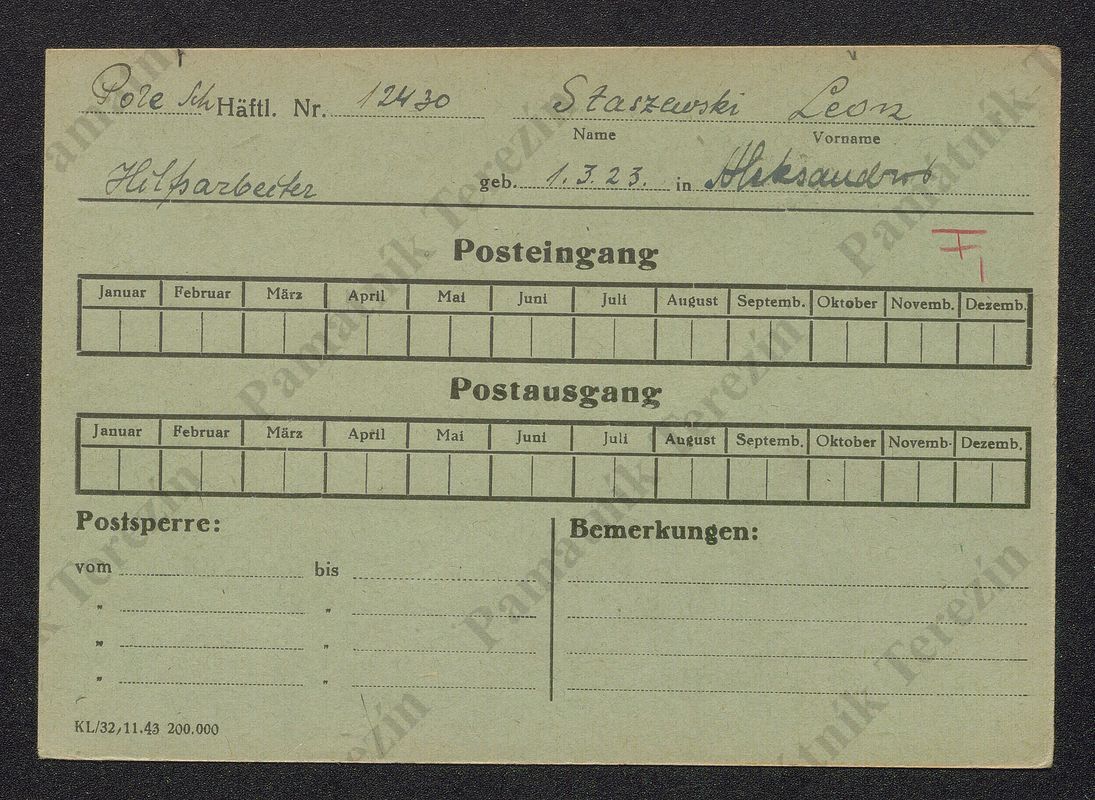 Pole Sch Häftl. Nr. 12430 Staszewski Leon
Name Vorname
Hilfsarbeiter geb. 1.3.23. in Aleksandrow
F1
Posteingang
Januar Februar März April Mai Juni Juli August Septemb. Oktober Novemb. Dezemb.
Postausgang
Januar Februar März April Mai Juni Juli August Septemb. Oktober Novemb. Dezemb.
Postsperre: Bemerkungen:
vom bis
" "
" "
" "
KL/32, 11.43 200.000
Památník Terezín